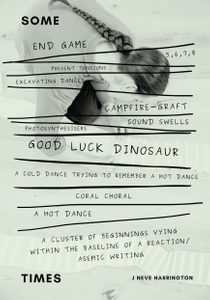 SOME
END GAME
5,6,7,8
PRESENT TENSIONS
EXCAVATING DANCES
CAMPFIRE-GRAFT
SOUND SWELLS
PHOTOSYNTHESISERS
GOOD LUCK DINOSAUR
A COLD DANCE TRYING TO REMEMBER A HOT DANCE
CORAL CHORAL
A HOT DANCE
A CLUSTER OF BEGINNINGS VYING
WITHIN THE BASELINE OF A REACTION/
ASEMIC WRITING
TIMES
J NEVE HARRINGTON